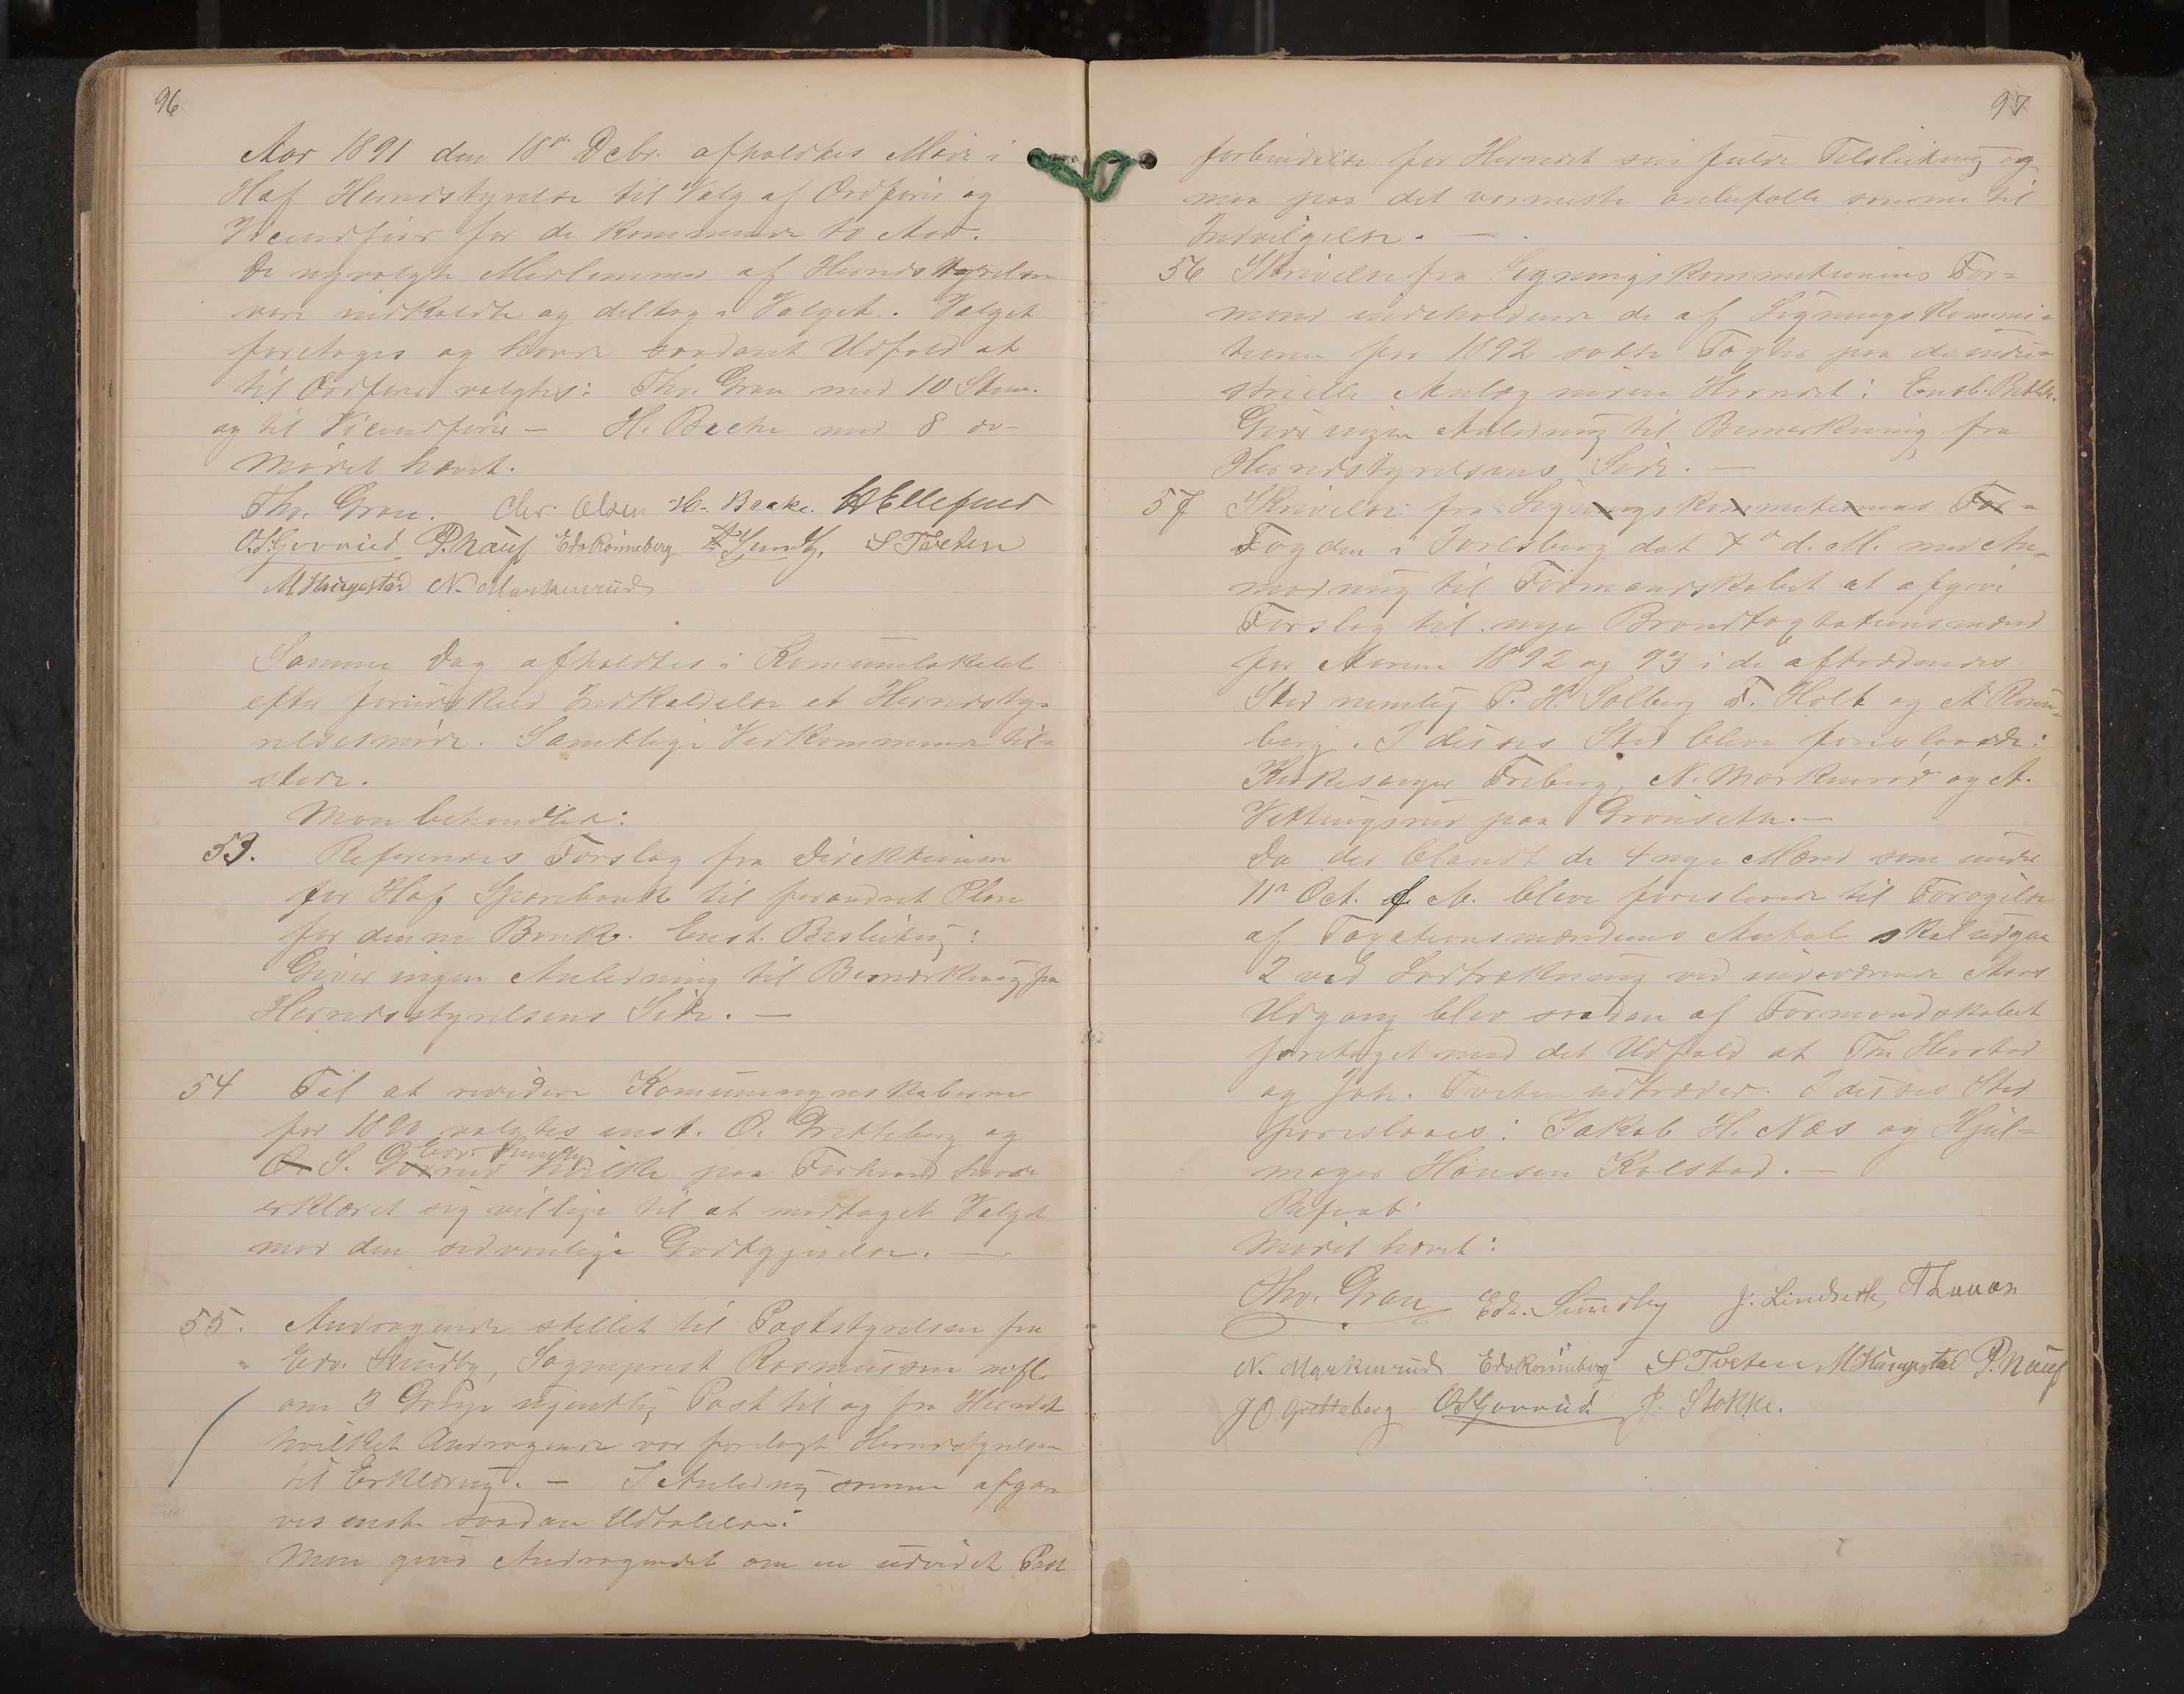 96
Aar 1891 den 18de Decbr. afholdtes Møde i
Hof Herredstyrelse til Valg af Ordfører og
Viceordfører for de kommende to Aar.
De nyvalgte Medlemmer af Herredsstyrelsen
vare indkaldte og deltog i Valget. Valget
foretoges og havde saadant Udfald at
til Ordfører valgtes: Thv. Gran med 10 Stem.
og til Viceordfører – H. Bache med 8 do –
Mødet hævet.
Thv. Gran. Chr. Olsen H. Backe. Ellefsen
O.S. Govrud P. Nauf Edv Rønneberg Sundby, S Tveten
M Haugestad N. Markerud
Samme Dag afholdtes i Komunelokalet
efter forudskeed Indkaldelse et Herredsty=
relsesmøde. Samtlige Vedkommende til=
stede.
Man behandlede:
53. Refereredes Forslag fra Direktionen
for Hof Sparebank til forandret Plan
for denne Bank. Enst. Beslutning:
Giver ingen Anledning til Bemærkning fra
Herredsstyrelsens Side. –
54 Til at revidere Komuneregnskaberne
for 1890 valgtes enst. O. Gretteberg og
Edv. Sundby
O. S. Govrud hvilke paa Forhaand havde
erklæret sig villige til at modtaget Valget
mod den sedvanlige Godtgjørelse. –
55. Andragende stillet til Poststyrelsen fra
Edv. Sundby, Sogneprest Rasmussen m.fl.
om 3 Gange ugentlig Post til og fra Herredet
hvilket Andragende var forelagt Herredstyrelsen
til Erklæring. – I Anledning samme afga=
ves enst. saadan Udtalelse:
Man giver Andragendet om en udvidet Post
97
forbindelse for Herredet sin fulde Tilslutning og
maa paa det varmeste anbefalle samme til
Indvilgelse. –
56 Skrivelse fra Ligningskommitionens For=
mand indeholdende de af Ligningskommi=
tionen for 1892 satte Taxter paa de indu=
strielle Anlæg inden Herredet: Enst. Beslutn.
Giver ingen Anledning til Bemærkning fra
Herredstyrelsens Side. –
57 Skrivelse fra Ligningskommitionens For=
Fogden i Jarlsberg dat 7de d. M. med An=
modning til Formandskabet at afgive
Forslag til nye Brandtaxtationsmænd
for Aarene 1892 og 93 i de aftrædendes
Sted nemlig P. H. Solberg F. Holt og A Rønne=
berg. I disses Sted bleve foreslaaede:
Kirkesanger Freberg, N. Markerud og A.
Vettingsrud paa Grønseth. –
Da der blandt de 4 nye Mænd som under
11te Oct. f. A. bleve foreslaaede til Forøgelse
af Taxationsmændenes Antal skal udgaa
2 ved Lodtrækning ved indeværende Aars
Udgang blev saadan af Formandskabet
foretaget med det Udfald at Th. Herstad
og Joh. Tveten udtræder. I disses Sted
foreslaaes: Jakob H. Næs og Hjul=
mager Hansen Kolstad. –
Referat
Mødet hævet:
Thv. Gran Edv. Sundby J. Lindseth
N. Markerud Edv Rønneberg S Tveten M Haugestad P. Nauf
J O Gretteberg O S Govrud J. Stokke.